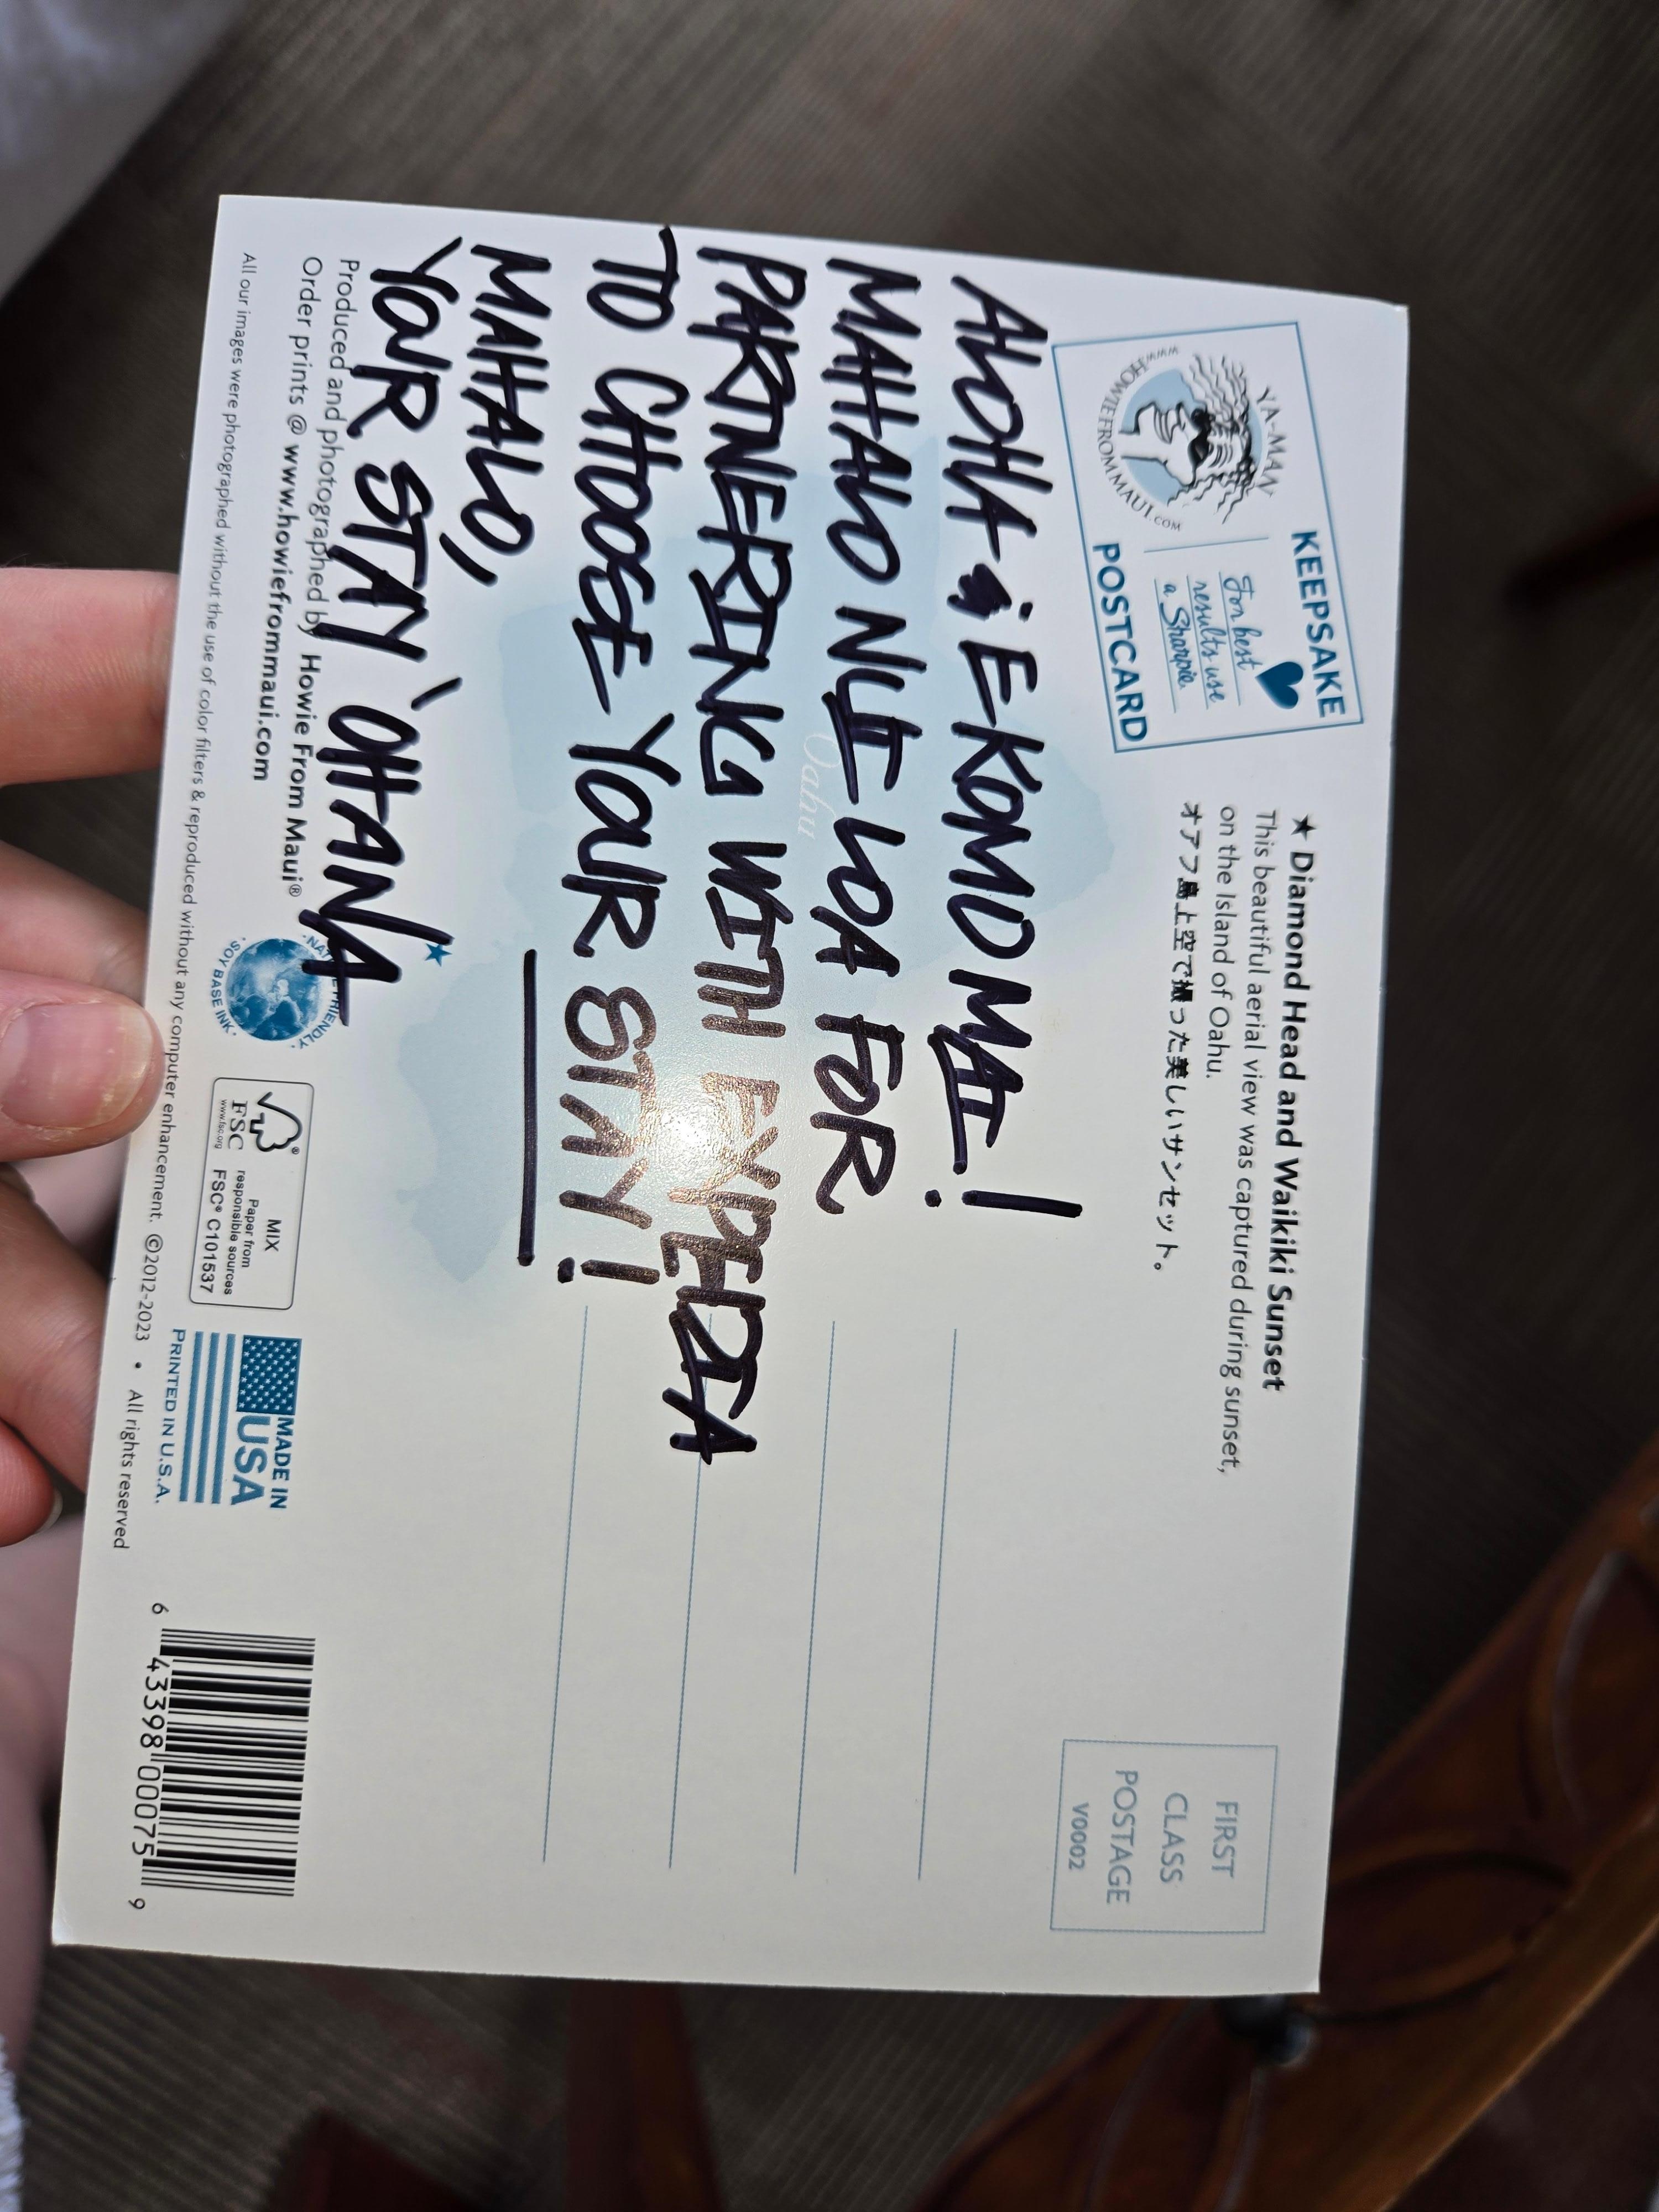 KEEPSAKE
YA-MAN
WWW.HOWIEFROMMAUI.COM
For best
results use
a Sharpie.
POSTCARD
★ Diamond Head and Waikiki Sunset
This beautiful aerial view was captured during sunset,
on the Island of Oahu.
オアフ島上空で撮った美しいサンセット。
FIRST
CLASS
POSTAGE
V0002
ALOHA & E KOMO MAI!
MAHALO NUI LOA FOR
Oahu
PARTNERING WITH EXPEDIA
TO CHOOSE YOUR STAY!
MAHALO,
YOUR STAY 'OHANA
Produced and photographed by Howie From Maui®
Order prints @ www.howiefrommaui.com
SOY BASE INK
MIX
Paper from
responsible sources
FSC® C101537
FSC
www.fsc.org
MADE IN
USA
PRINTED IN U.S.A.
All our images were photographed without the use of color filters & reproduced without any computer enhancement. ©2012-2023 • All rights reserved
6 43398 00075 9